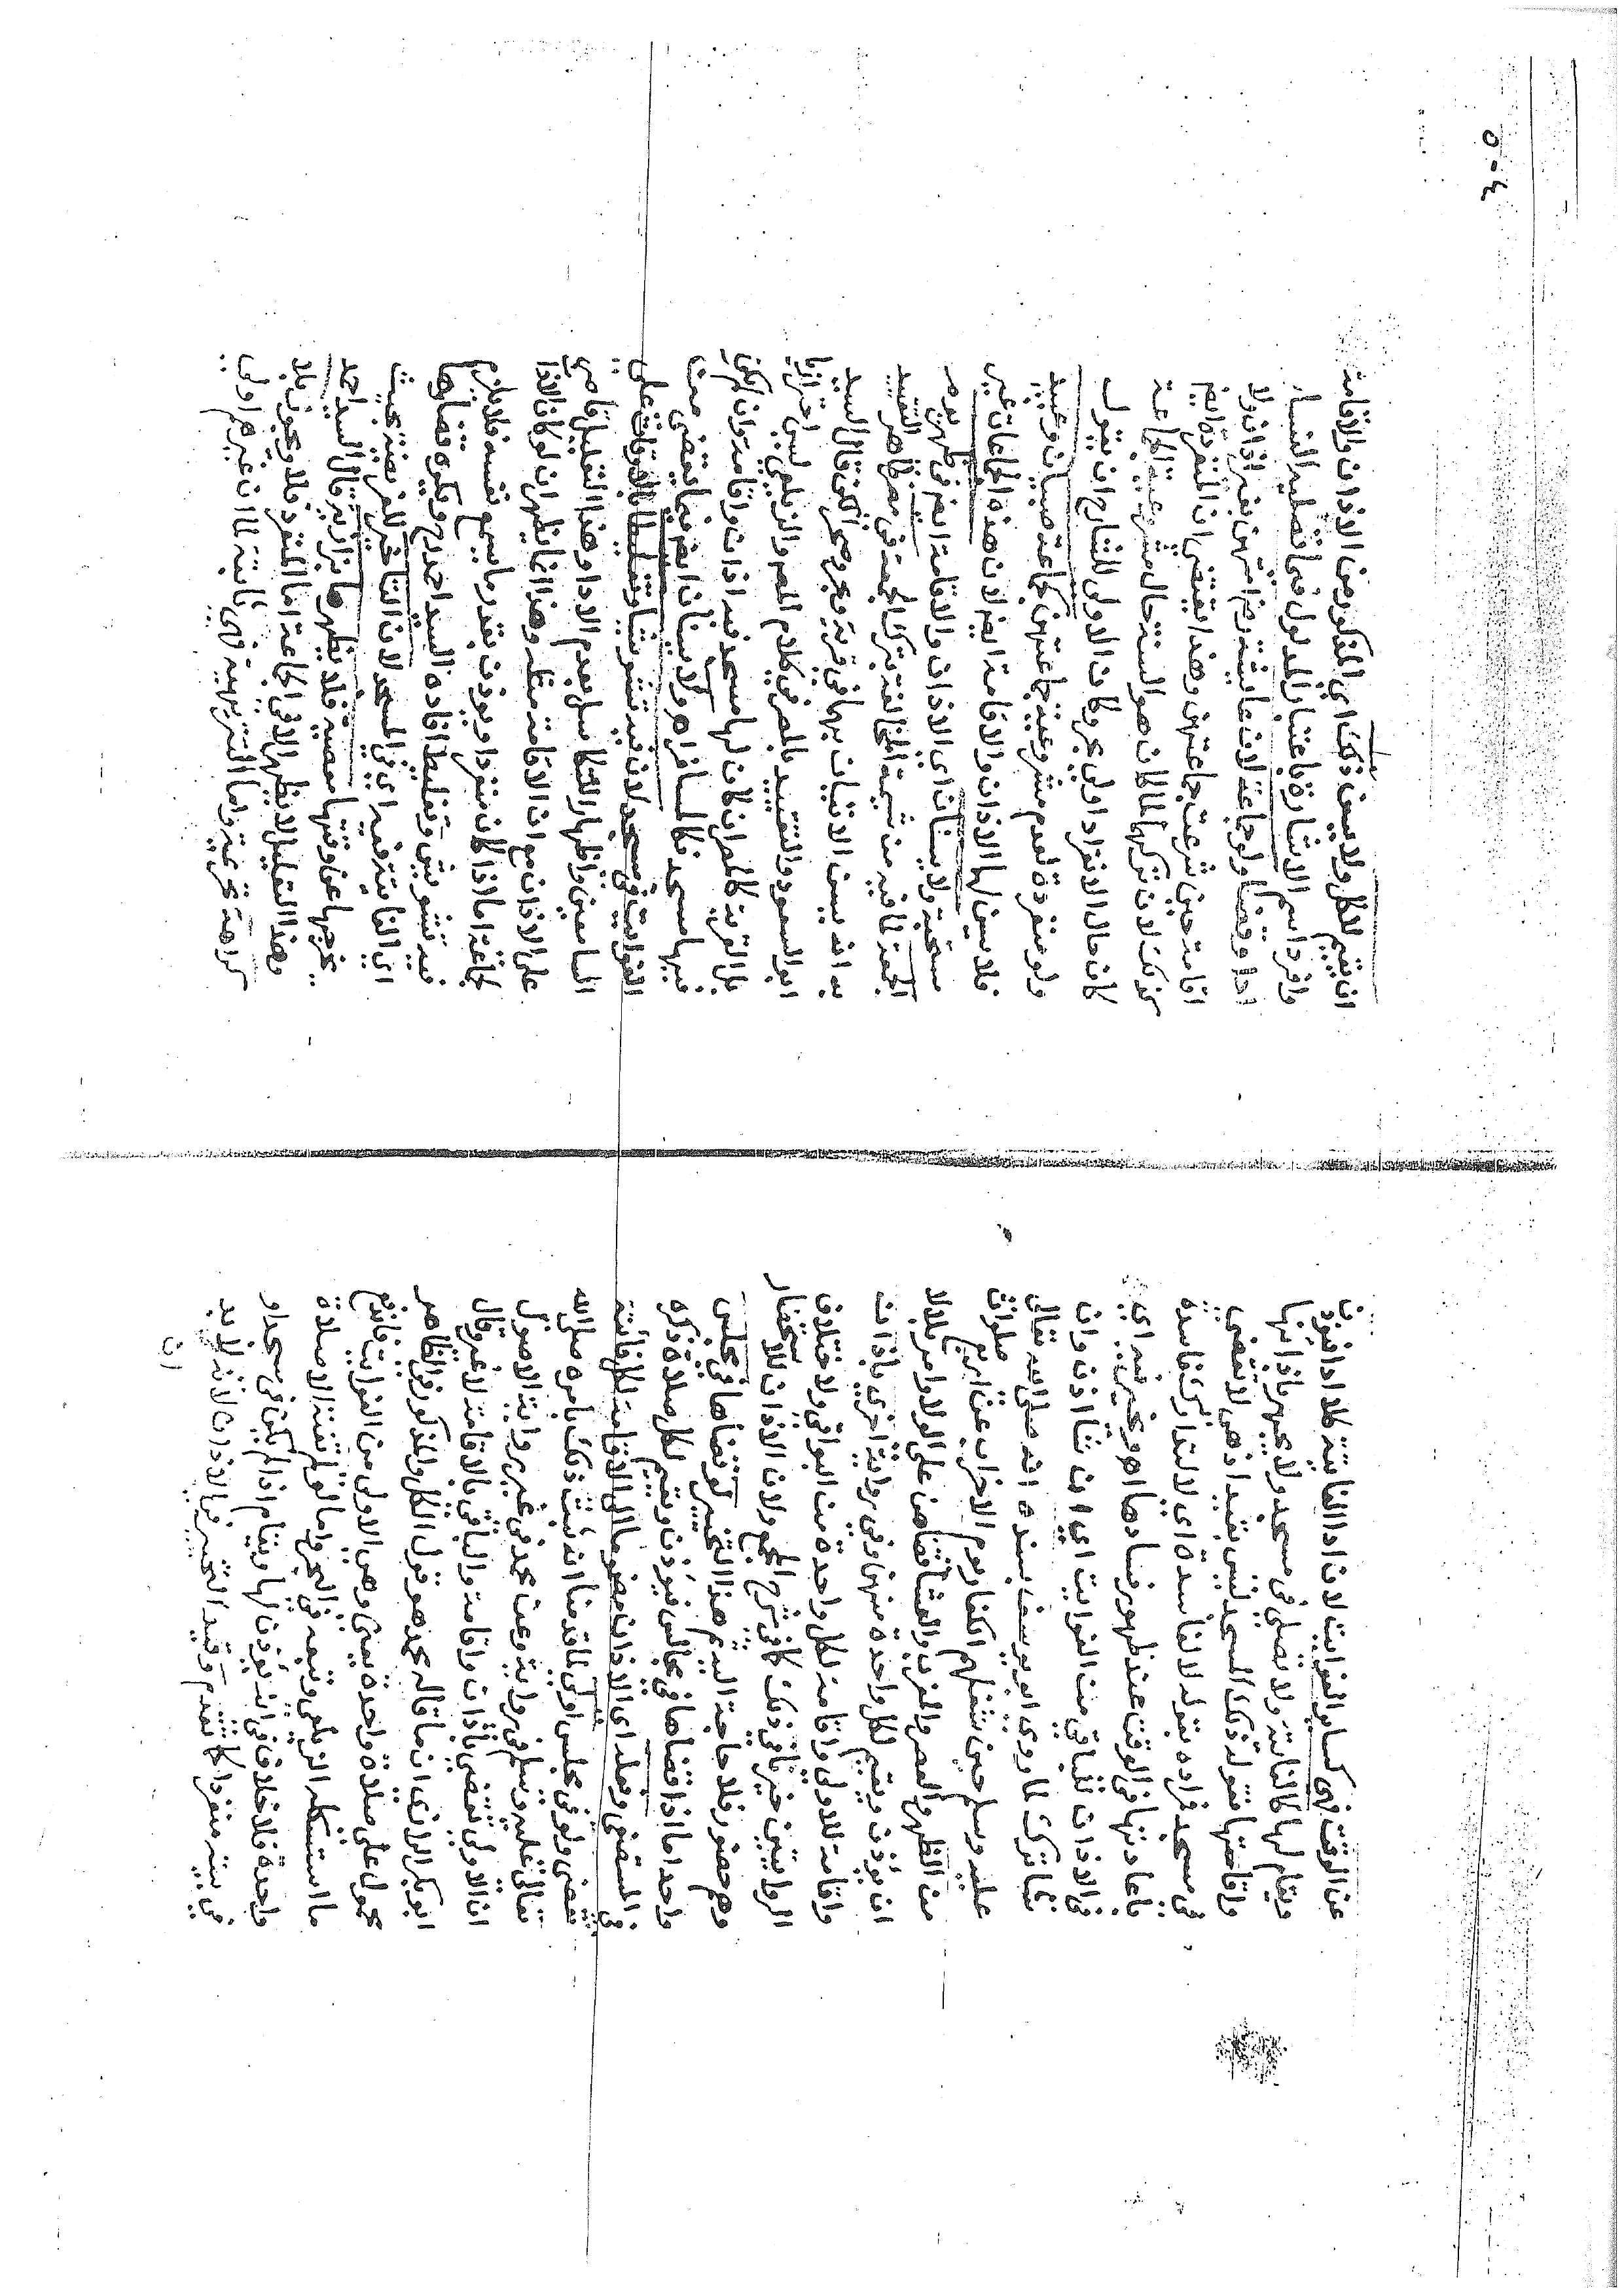 ٥٠٤
عن الوقت فهي كساير الفوايت لان اداء الفايتة كلا اداء فيؤذن
ويقام لها كالفايتة ولا تصلى في مسجد ولا يجهر باذانها
واقامتها فقوله ذلك المسجد ليس بقيد اذ هي لا تقضى
في مسجد فزاده بقوله لا لفاسدة اي لا ابتدا فاسدة
فاعادتها في الوقت عند ظهور فسادها وهو يخير فيه اي
في الاذان للباقي من الفوايت اي ان شا اذن وان
شا ترك لما روى ابو يوسف بسنده انه صلى الله تعالى
عليه وسلم حين شغلهم الكفار يوم الاحزاب عن اربع صلوات
من الظهر والعصر والمغرب والعشا قضاهن على الولا وامر بلالا
ان يؤذن ويقيم لكل واحدة منهن وفي رواية اخرى باذان
واقامة للاولى واقامة لكل واحدة من البواقي ولاختلاف
الروايتين خيرنا في ذلك كما في شرح المجمع ولان الاذان للاستحضار
وهم حضور فلا حاجة اليه ثم هذا التخيير لو قضاها في مجلس
واحد اما اذا قضاها في مجالس فيؤذن ويقيم لكل صلاة ذكره
في المستصفى وفعله اي الاذان مضموما الى الاقامة لكل فائتة
تقضى ولو في مجلس اولى لما قدمنا انه ثبت ذلك بامره صلى الله
تعالى عليه وسلم في رواية وعن محمد في غير رواية الاصول
ان الاولى تقضى باذان واقامة والباقي بالاقامة لا غير وقال
ابو بكر الرازي ان ما قاله محمد هو قول الكل والمذكور في الظاهر
محمول على صلاة واحدة يعني وهي الاولى من الفوايت فاندفع
ما استشكله الزيلعي وتبعه في البحر واما لو لم تفته الا صلاة
واحدة فلا خلاف في انه يؤذن لها ويقام اذا لم يكن في مسجد او
في بيته منفردا كما تقدم وقيد التخيير في الاذان لانه لا بد
ان
ان يقيم للكل ولا يسن ذلك اي المذكور من الاذان والاقامة
وافرد اسم الاشارة باعتبار المدلول فيما تصليه النساء
اداء وقضاء ولو جماعة لان عايشة رضى امتهن بغير اذان ولا
اقامة حين شرعت جماعتهن وهذا يقتضي ان المنفردة ايضا
كذلك لان تركهما لما كان هو السنة حال مشروعية الجماعة
كان حال الانفراد اولى بحر وكان الاولى للشارح ان يقول
ولو منفردة لعدم مشروعية جماعتهن كجماعة صبيان وعبيد
فلا يسن لها الاذان والاقامة ايضا لان هذه الجماعات غير
مستحبة ولا يسنان اي الاذان والاقامة ايضا في ظهر يوم
الجمعة لما فيه من شبهة المخالفة بترك الجمعة في مصر ظاهر التقييد
به انه يسن الاتيان بهما في قرية لكن قال السيد
ابو السعود والتقييد بالمصر في كلام المصر والزيلعي ليس احترازيا
بل القرية كالمصر ان كان لها مسجد فيه اذان واقامة وان لم يكن
فيها مسجد فكالمسافر اه ولا يسنان ايضا فيما يقضى من
الفوايت في مسجد لان فيه تشويشا وتغليطا بالاوقات على
السامعين واظهار التكاسل بعدم الاداء وهذا التعليل قاصر
على الاذان مع ان الاقامة مثله وهذا انما يظهر ان لو كان الاذان
لجماعة اما اذا كان منفردا ويؤذن بقدر ما يسمع نفسه فلا يلزم
فيه تشويش وتغليط افاده السيد احمد ح ويكره قضاؤها
اي الفائتة فيه اي في المسجد لان التاخير للفريضة بحيث
يخرجها عن وقتها معصية فلا يظهرها بزازية قال السيد احمد
وهذا التعليل لا يظهر الا في الجماعة اما المنفرد فلا ويجوز بلا
كراهة تحريمية واما التنزيهية فهي ثابتة لما ان غيرهم اولى